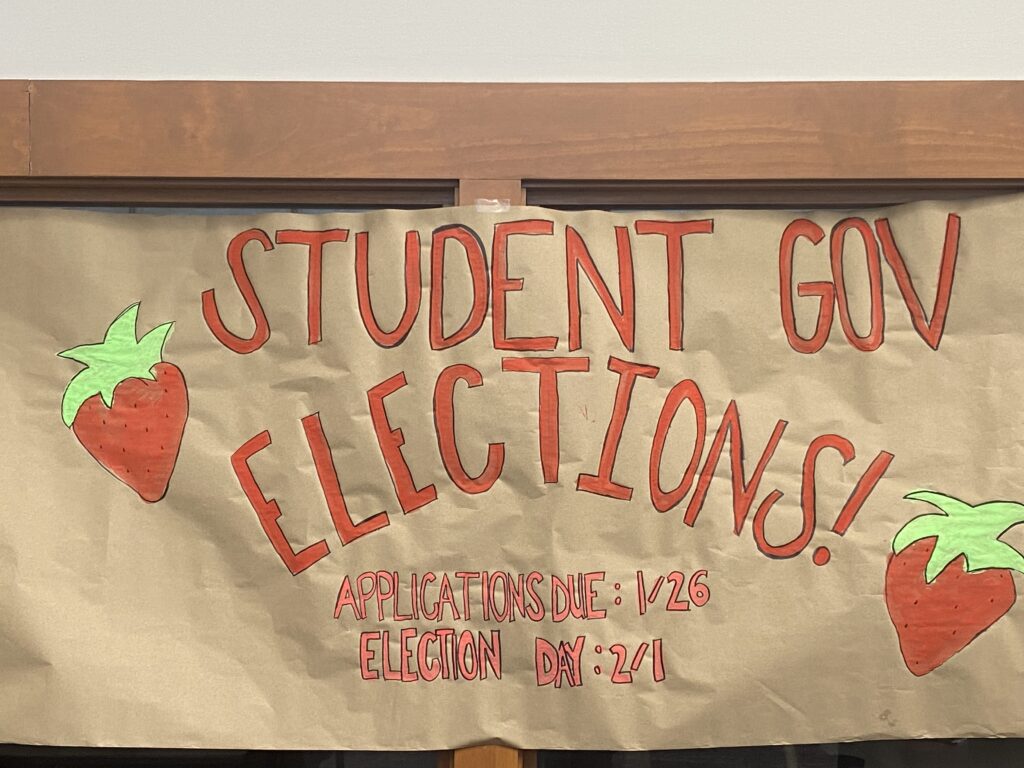 STUDENT GOV
ELECTIONS!
APPLICATIONS DUE: 1/26
ELECTION DAY: 2/1